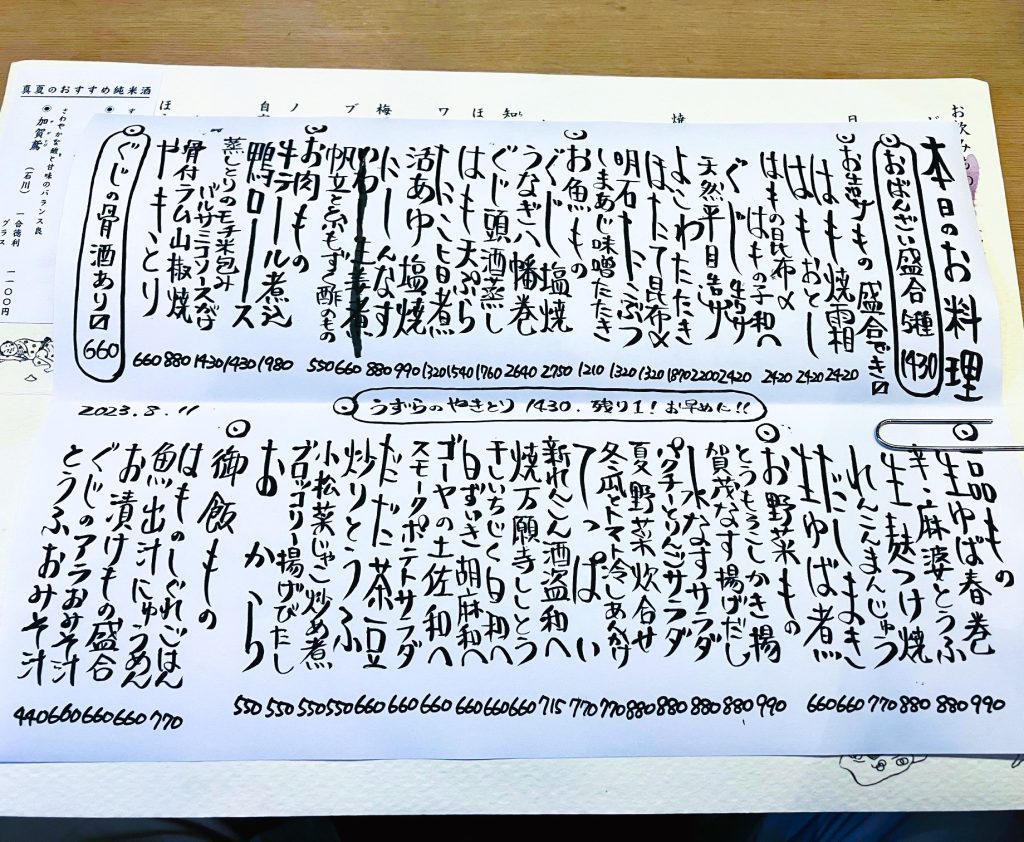 本日のお料理
おばんざい盛合 5種 1430
お造りもの 盛合でき〼
はも焼霜 2420
はもおとし 2420
はもの昆布〆 2420
はもの子和へ
ぐじ生造り 2420
天然平目造り 2200
よこわたたき 1870
ほたて昆布〆 1320
明石だこぶつ 1320
しまあじ味噌たたき 1210
お魚もの
ぐじ塩焼 2750
うなぎ八幡巻 2640
ぐじ頭酒蒸し 1760
はも天ぷら 1540
たこ旨煮 1320
活あゆ塩焼 990
にしんなす 880
いわし生姜煮 660
帆立と糸もずく酢のもの 550
お肉もの
牛テール煮込 1980
鴨ロース 1430
蒸しとりのモチ米包み
バルサミコソースがけ 1430
骨付ラム山椒焼 880
やきとり 660
ぐじの骨酒あり〼 660
うずらのやきとり 1430. 残り1! お早めに!!
2023.8.11
一品もの
生ゆば春巻 990
辛・麻婆とうふ 880
生麩つけ焼 880
れんこんまんじゅう 770
だしまき 660
生ゆば煮 660
お野菜もの
とうもろこしかき揚 990
賀茂なす揚げだし 880
水なすサラダ 880
パクチーとりんごサラダ 880
夏野菜炊合せ 880
冬瓜とトマト冷しあんかけ 770
てっぱい 770
新れんこん酒盗和へ 715
焼万願寺ししとう 660
干しいちじく白和へ 660
白ずいき胡麻和へ 660
ゴーヤの土佐和へ 660
スモークポテトサラダ 660
だだ茶豆 660
炒りとうふ 550
小松菜じゃこ炒め煮 550
ブロッコリー揚げびたし 550
おから 550
御飯もの
はものしぐれごはん 770
魚出汁にゅうめん 660
お漬けもの盛合 660
ぐじのアラおみそ汁 660
とうふおみそ汁 440
お飲みもの
真夏のおすすめ純米酒
加賀鳶 (石川)
一合徳利 一一〇〇円
グラス